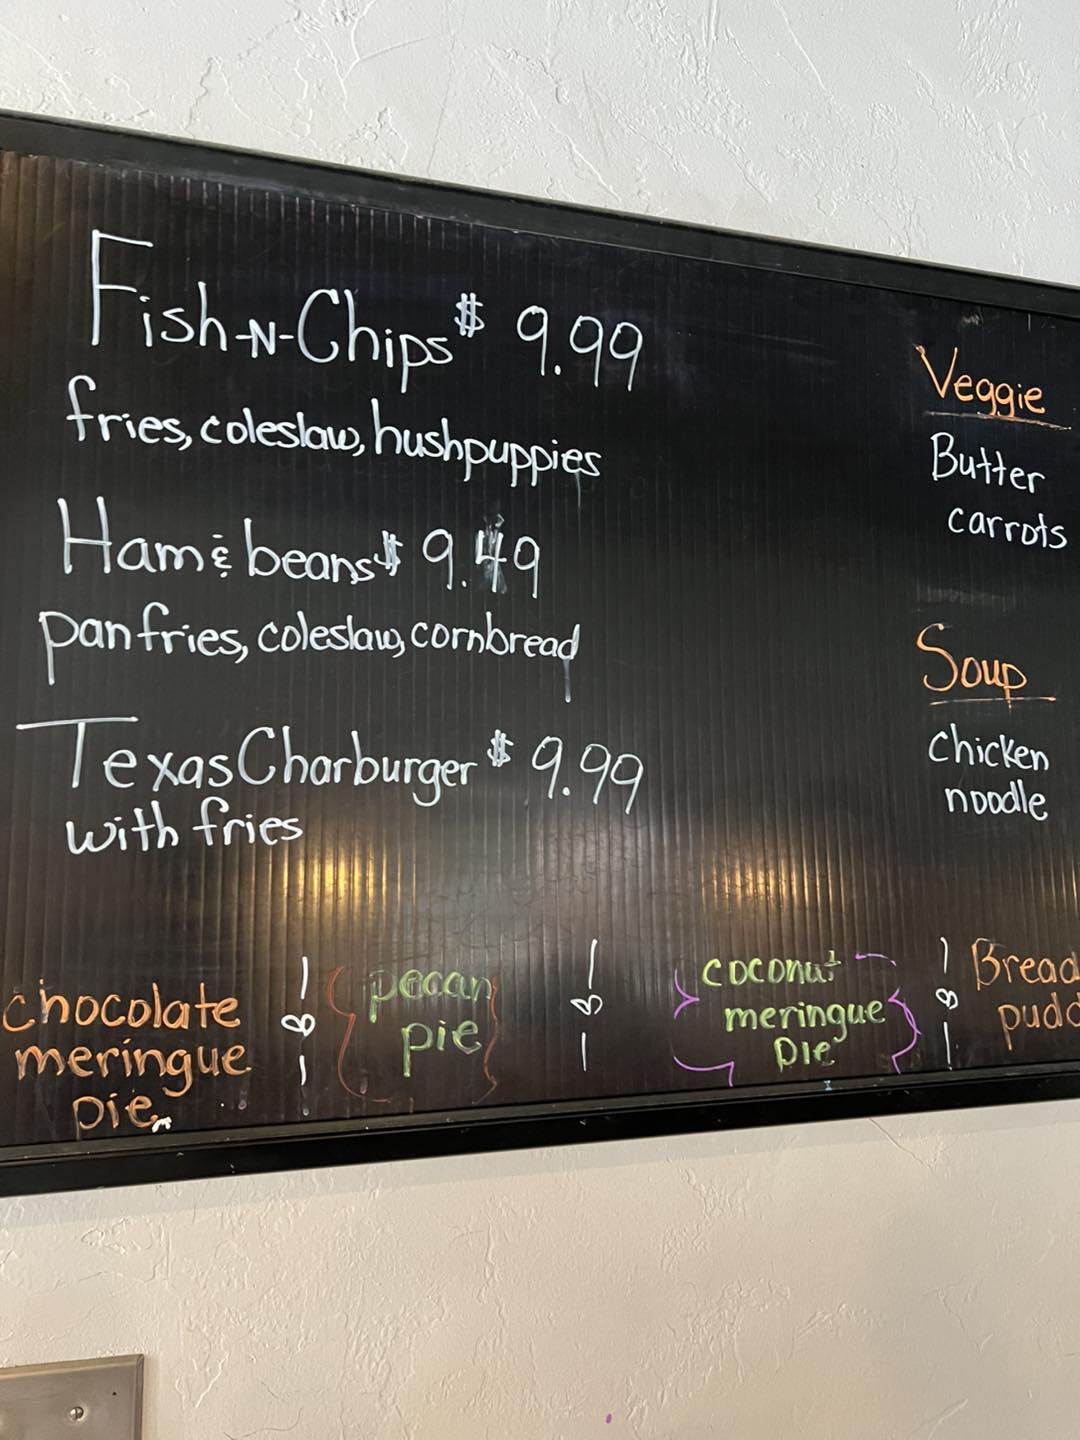 Fish-N-Chips $ 9.99
fries, coleslaw, hushpuppies
Ham & beans $ 9.49
pan fries, coleslaw, cornbread
Texas Charburger $ 9.99
with fries
Veggie
Butter
carrots
Soup
Chicken
noodle
chocolate
meringue
pie
pecan
pie
coconut
meringue
pie
Bread
pudd